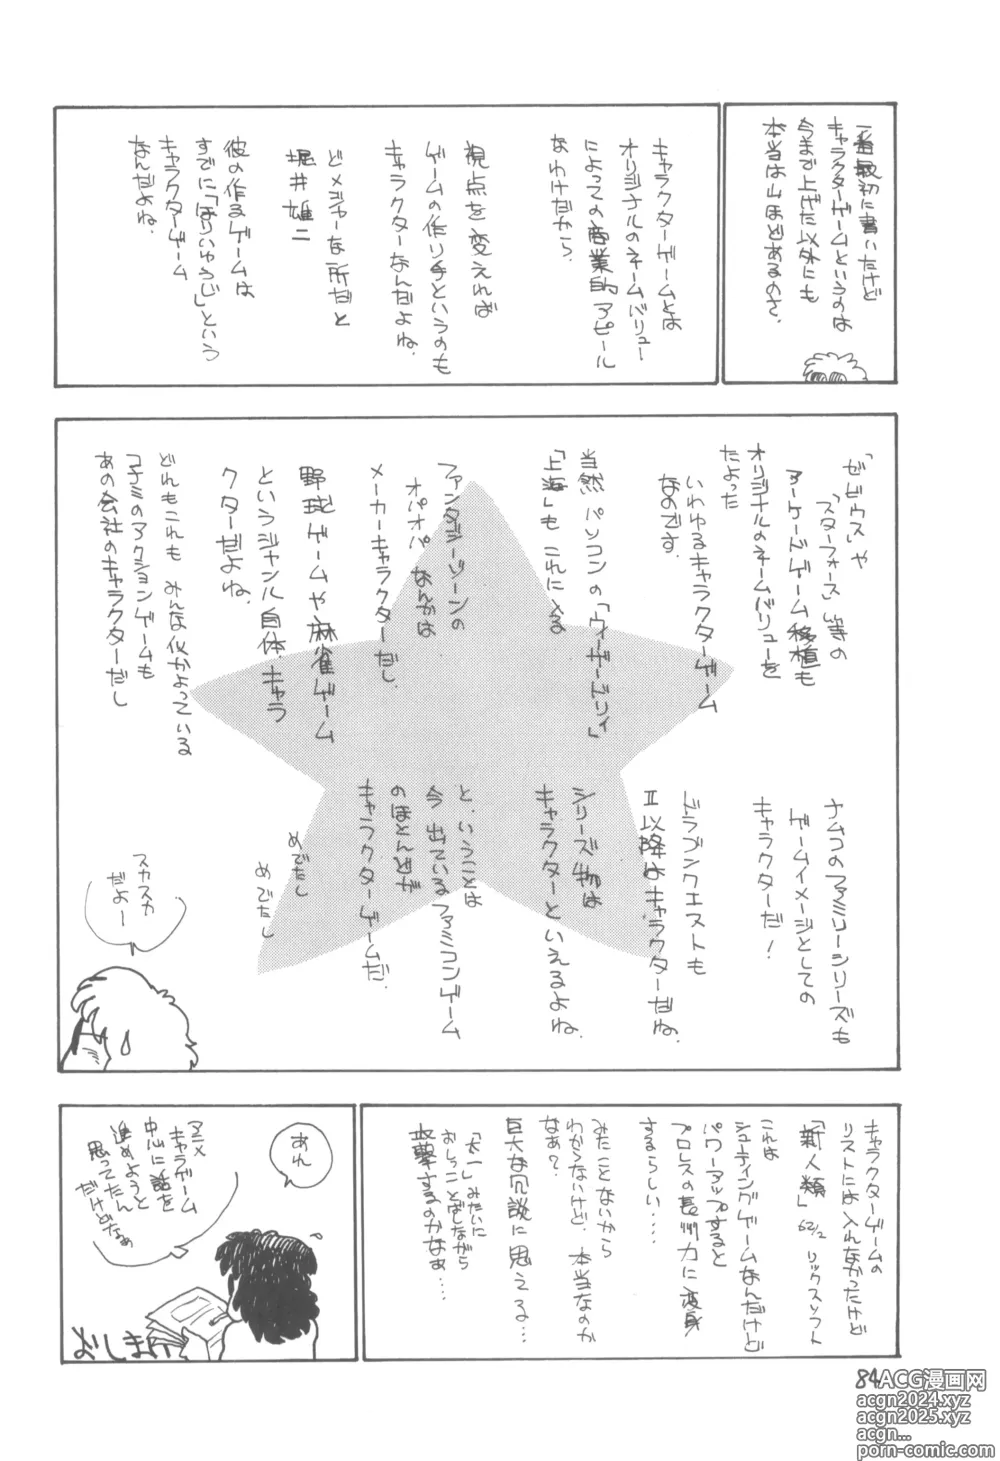 一番最初に書いたけど
キャラクターゲームというのは
今まで上げた以外にも
本当は山ほどあるのさ、
キャラクターゲームとは
オリジナルのネームバリュー
によっての商業的アピール
なわけだから、
視点を変えれば
ゲームの作り手というのも
キャラクターなんだよね、
どメジャーな所だと
堀井雄二
彼の作るゲームは
すでに「ほりいゆうじ」という
キャラクターゲーム
なんだよね、
「ゼビウス」や
「スターフォース」等の
アーケードゲーム移植も
オリジナルのネームバリューを
たよった
いわゆるキャラクターゲーム
なのです、
当然パソコンの「ウィザードリィ」
「上海」もこれに入る
ファンタジーゾーンの
オパオパなんかは
メーカーキャラクターだし、
野球ゲームや麻雀ゲーム
というジャンル自体、キャラ
クターだよね、
どれもこれもみんな似かよっている
コナミのアクションゲームも
あの会社のキャラクターだし
ナムコのファミリーシリーズも
ゲームイメージとしての
キャラクターだ!
ドラゴンクエストも
II以降はキャラクターだね、
シリーズ物は
キャラクターといえるよね、
と、いうことは
今出ているファミコンゲーム
のほとんどが
キャラクターゲームだ、
めでたし
めでたし
スカスカ
だよー
キャラクターゲームの
リストには入れなかったけど
「新人類」62/2 リックスソフト
これは
シューティングゲームなんだけど
パワーアップすると
プロレスの長州力に変身
するらしい‥‥
みたことないから
わからないけど、本当なのか
なあ?
巨大な冗談に思える…
「太一」みたいに
おしっことばしながら
攻撃するのかなぁ…
あれ
アニメ
キャラゲーム
中心に話を
進めようと
思ってたん
だけどなぁ
おしまい
84
ACG漫画网
acgn2024.xyz
acgn2025.xyz
acgn...
porn-comic.com